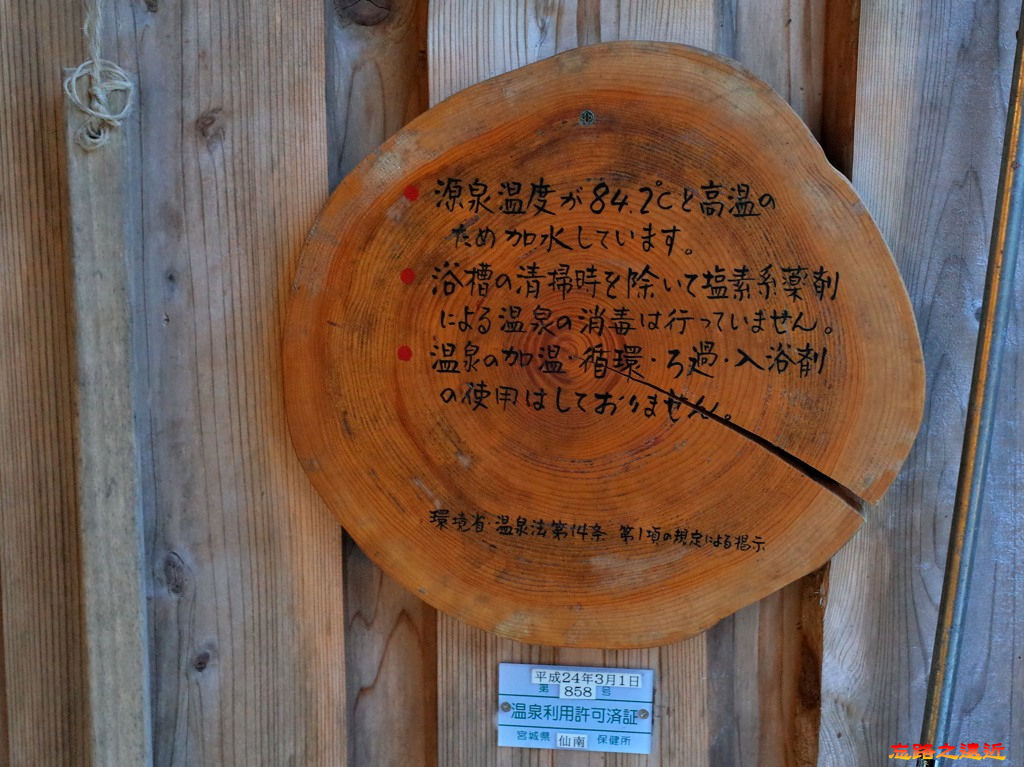 源泉温度が84.2℃と高温の
ため加水しています。
浴槽の清掃時を除いて塩素系薬剤
による温泉の消毒は行っていません。
温泉の加温・循環・ろ過・入浴剤
の使用はしておりません。
環境省・温泉法第14条 第1項の規定による掲示
平成24年3月1日
第 858 号
温泉利用許可済証
宮城県 仙南 保健所
忘路之遠近